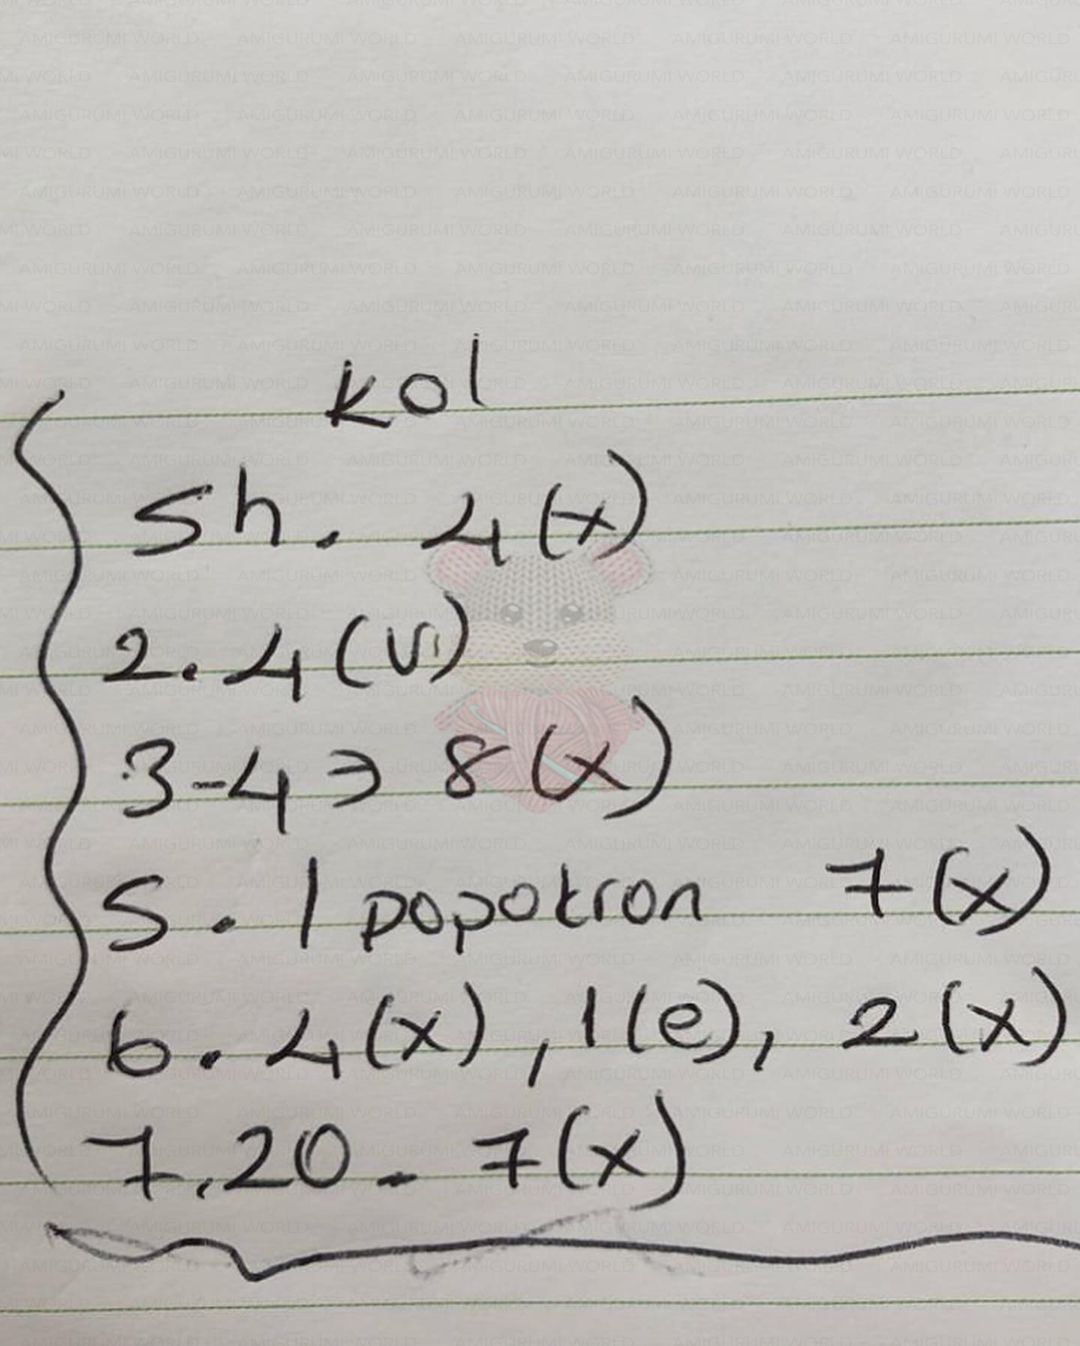 kol
Sh. 4(x)
2. 4(v)
3-4 → 8(x)
5. 1 popotron 7(x)
6. 4(x), 1(e), 2(x)
7.20. 7(x)
AMIGURUMI WORLD